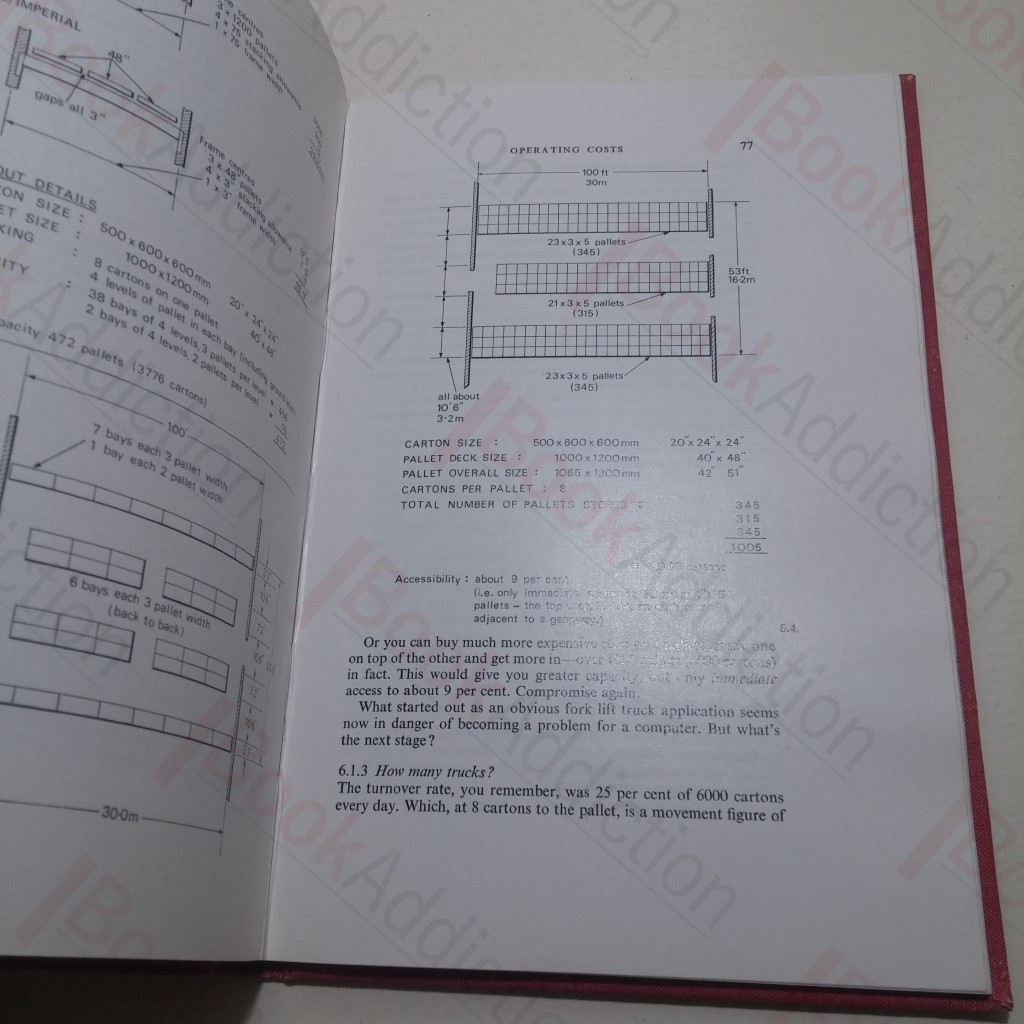 IMPERIAL
48"
gaps all 3"
centres
3 x 1200 pallets
4 x 75 stacking allowance
1 x 75 frame width
Frame centres
3 x 48" pallets
4 x 3" stacking allowance
1 x 3" frame width
OUT DETAILS
SIZE : 500 x 600 x 600 mm 20" x 24" x 24"
SIZE : 1000 x 1200 mm 40" x 48"
KING : 8 cartons on one pallet
4 levels of pallet in each bay (including ground level)
CITY : 38 bays of 4 levels, 3 pallets per level = 456
2 bays of 4 levels, 2 pallets per level =
pacity 472 pallets (3776 cartons)
100'
7 bays each 3 pallet width
1 bay each 2 pallet width
6 bays each 3 pallet width
(back to back)
30·0m
OPERATING COSTS 77
100 ft
30m
23 x 3 x 5 pallets
(345)
53ft
16·2m
21 x 3 x 5 pallets
(315)
23 x 3 x 5 pallets
(345)
all about
10'6"
3·2m
CARTON SIZE : 500 x 600 x 600 mm 20" x 24" x 24"
PALLET DECK SIZE : 1000 x 1200 mm 40" x 48"
PALLET OVERALL SIZE : 1065 x 1300 mm 42" 51"
CARTONS PER PALLET : 8
TOTAL NUMBER OF PALLETS STORED : 345
315
345
1005
cartons
Accessibility : about 9 per cent
(i.e. only immediate
pallets – the top
adjacent to a gangway.)
6.4.
Or you can buy much more expensive one
on top of the other and get more in—over
in fact. This would give you greater capacity, but only immediate
access to about 9 per cent. Compromise again.
What started out as an obvious fork lift truck application seems
now in danger of becoming a problem for a computer. But what's
the next stage?
6.1.3 How many trucks?
The turnover rate, you remember, was 25 per cent of 6000 cartons
every day. Which, at 8 cartons to the pallet, is a movement figure of
BookAddiction